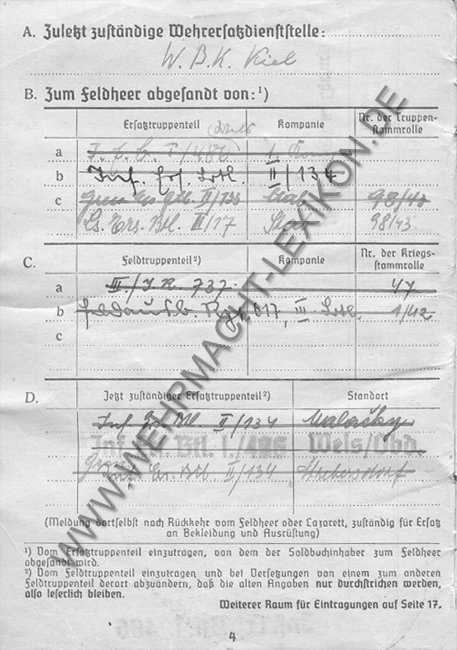 A. Zuletzt zuständige Wehrersatzdienststelle:
W.B.K. Kiel
B. Zum Feldheer abgesandt von:¹)
Ersatztruppenteil Kompanie Nr. der Truppenstammrolle
a I.E.B. I/486
b Inf. Ers. Btl. II/134
c II/133 98/43
Ls. Ers. Btl. III/17 98/43
C. Feldtruppenteil²) Kompanie Nr. der Kriegsstammrolle
a III/I.R. 737. 47
b Feldausb. Rgt. 617, III. 1/42
c
D. Jetzt zuständiger Ersatztruppenteil²) Standort
Inf. Ers. Btl. II/134 Malacky
Inf. Ers. Btl. I./486 Wels/Obd.
Gren. Ers. Btl. II/134
(Meldung dortselbst nach Rückkehr vom Feldheer oder Lazarett, zuständig für Ersatz
an Bekleidung und Ausrüstung)
¹) Vom Ersatztruppenteil einzutragen, von dem der Soldbuchinhaber zum Feldheer
abgesandt wird.
²) Vom Feldtruppenteil einzutragen und bei Versetzungen von einem zum anderen
Feldtruppenteil derart abzuändern, daß die alten Angaben nur durchstrichen werden,
also leserlich bleiben.
Weiterer Raum für Eintragungen auf Seite 17.
4
WWW.WEHRMACHT-LEXIKON.DE